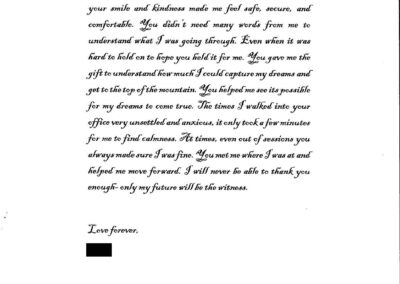 your smile and kindness made me feel safe, secure, and
comfortable. You didn't need many words from me to
understand what I was going through. Even when it was
hard to hold on to hope you held it for me. You gave me the
gift to understand how much I could capture my dreams and
get to the top of the mountain. You helped me see its possible
for my dreams to come true. The times I walked into your
office very unsettled and anxious, it only took a few minutes
for me to find calmness. At times, even out of sessions you
always made sure I was fine. You met me where I was at and
helped me move forward. I will never be able to thank you
enough- only my future will be the witness.
Love forever,